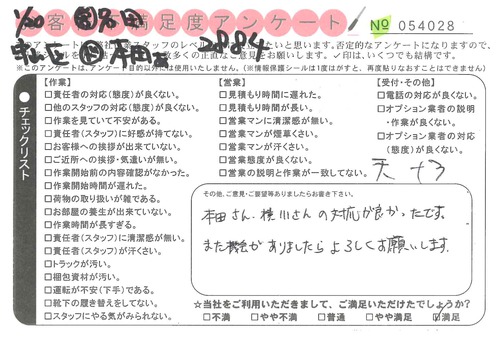 1/20
お客様不満足度アンケート
№ 054028
2884
本田
※このアンケートは、アンケート目的以外には使用いたしません。(※情報保護シールは1度はがすと、再度貼りなおすことはできません)
チェックリスト
【作業】
□責任者の対応(態度)が良くない。
□他のスタッフの対応(態度)が良くない。
□作業を見ていて不安がある。
□責任者(スタッフ)に好感が持てない。
□お客様への挨拶が出来ていない。
□ご近所への挨拶・気遣いが無い。
□作業開始前の内容確認がなかった。
□作業開始時間が遅れた。
□荷物の取り扱いが雑である。
□お部屋の養生が出来ていない。
□作業時間が長すぎる。
□責任者(スタッフ)に清潔感が無い。
□責任者(スタッフ)が汗くさい。
□トラックが汚い。
□梱包資材が汚い。
□運転が不安(下手)である。
□靴下の履き替えをしてない。
□スタッフにやる気がみられない。
【営業】
□見積もり時間に遅れた。
□見積もり時間が長い。
□営業マンに清潔感が無い。
□営業マンが煙草くさい。
□営業マンが汗くさい。
□営業態度が良くない。
□営業の説明と作業が一致してない。
【受付・その他】
□電話の対応が良くない。
□オプション業者の説明・作業が良くない。
□オプション業者の対応(態度)が良くない。
その他、ご意見・ご要望等ありましたらお書き下さい。
本田さん、横川さんの対応が良かったです。
また機会がありましたらよろしくお願いします。
☆当社をご利用いただきまして、ご満足いただけたでしょうか?
□不満 □やや不満 □普通 □やや満足 ☑満足